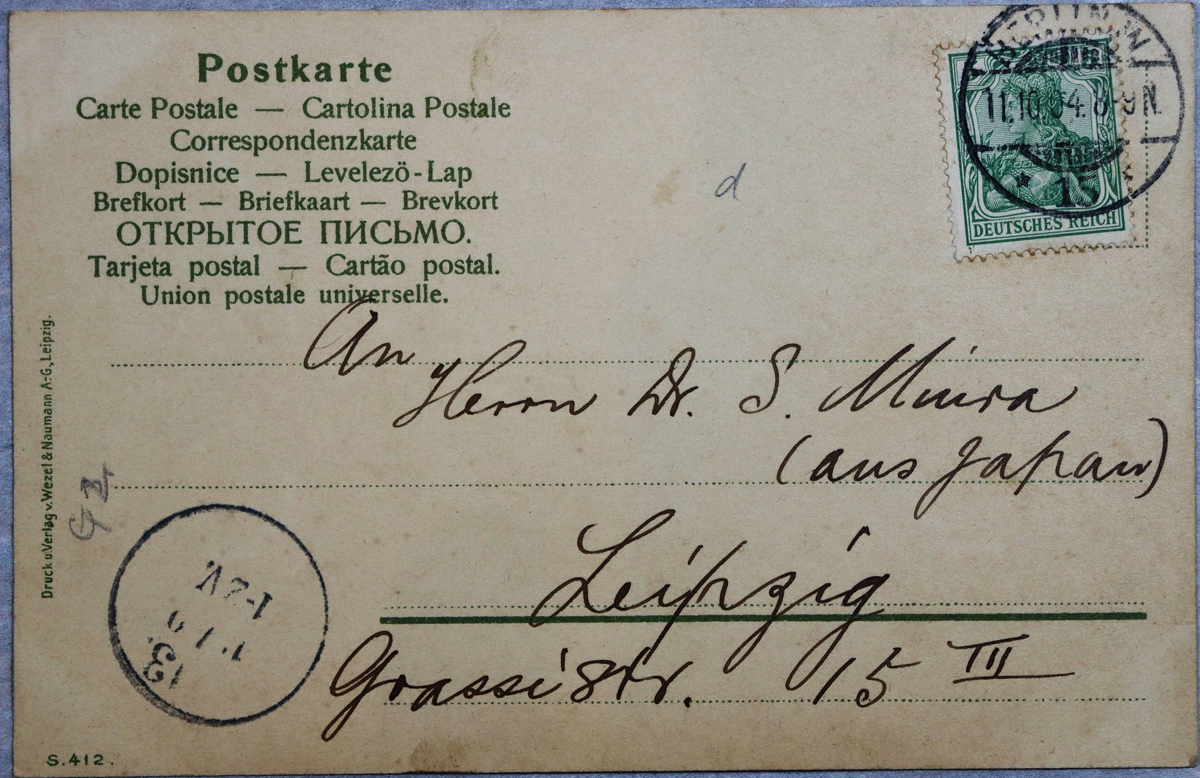 Postkarte
Carte Postale — Cartolina Postale
Correspondenzkarte
Dopisnice — Levelezö-Lap
Brefkort — Briefkaart — Brevkort
ОТКРЫТОЕ ПИСЬМО.
Tarjeta postal — Cartão postal.
Union postale universelle.
BERLIN, N.W
11.10.04. 8-9N.
* 15
DEUTSCHES REICH
d
An
Herrn Dr. S. Miura
(aus Japan)
Leipzig
Grassistr. 15 III
Druck u.Verlag v. Wezel & Naumann A.-G., Leipzig.
1-2V.
S.412.